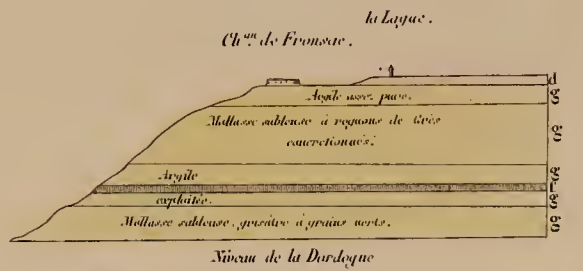 la Laque.
Ch.au de Fronsac.
d
Argile assez pure.
Mollasse sableuse à rognons de Grès
concrétionnés.
Argile
exploitée.
Mollasse sableuse, grisâtre à grains verts.
Niveau de la Dordogne